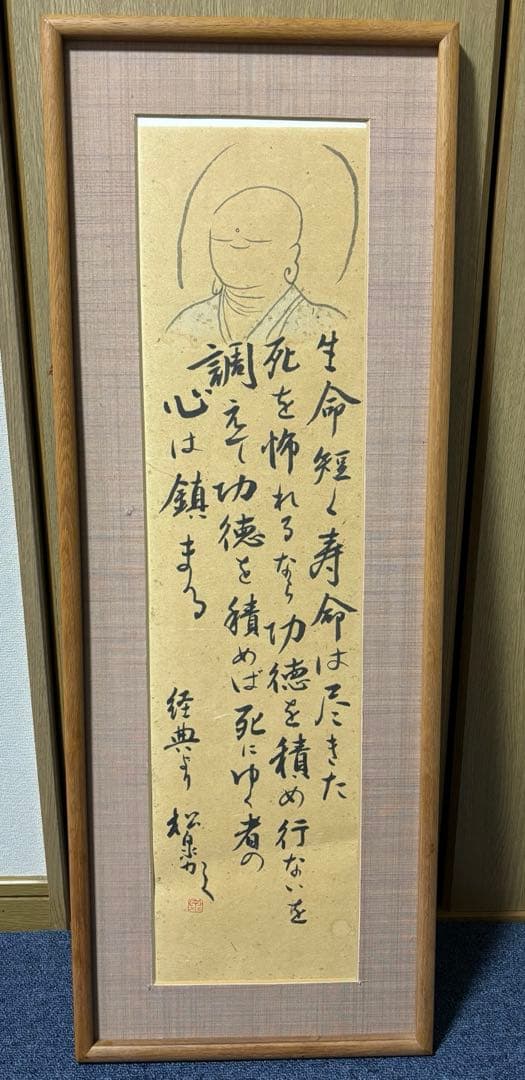 生命短く寿命は尽きた
死を怖れるなら功徳を積め行ないを
調えて功徳を積めば死にゆく者の
心は鎮まる
経典より 松泉